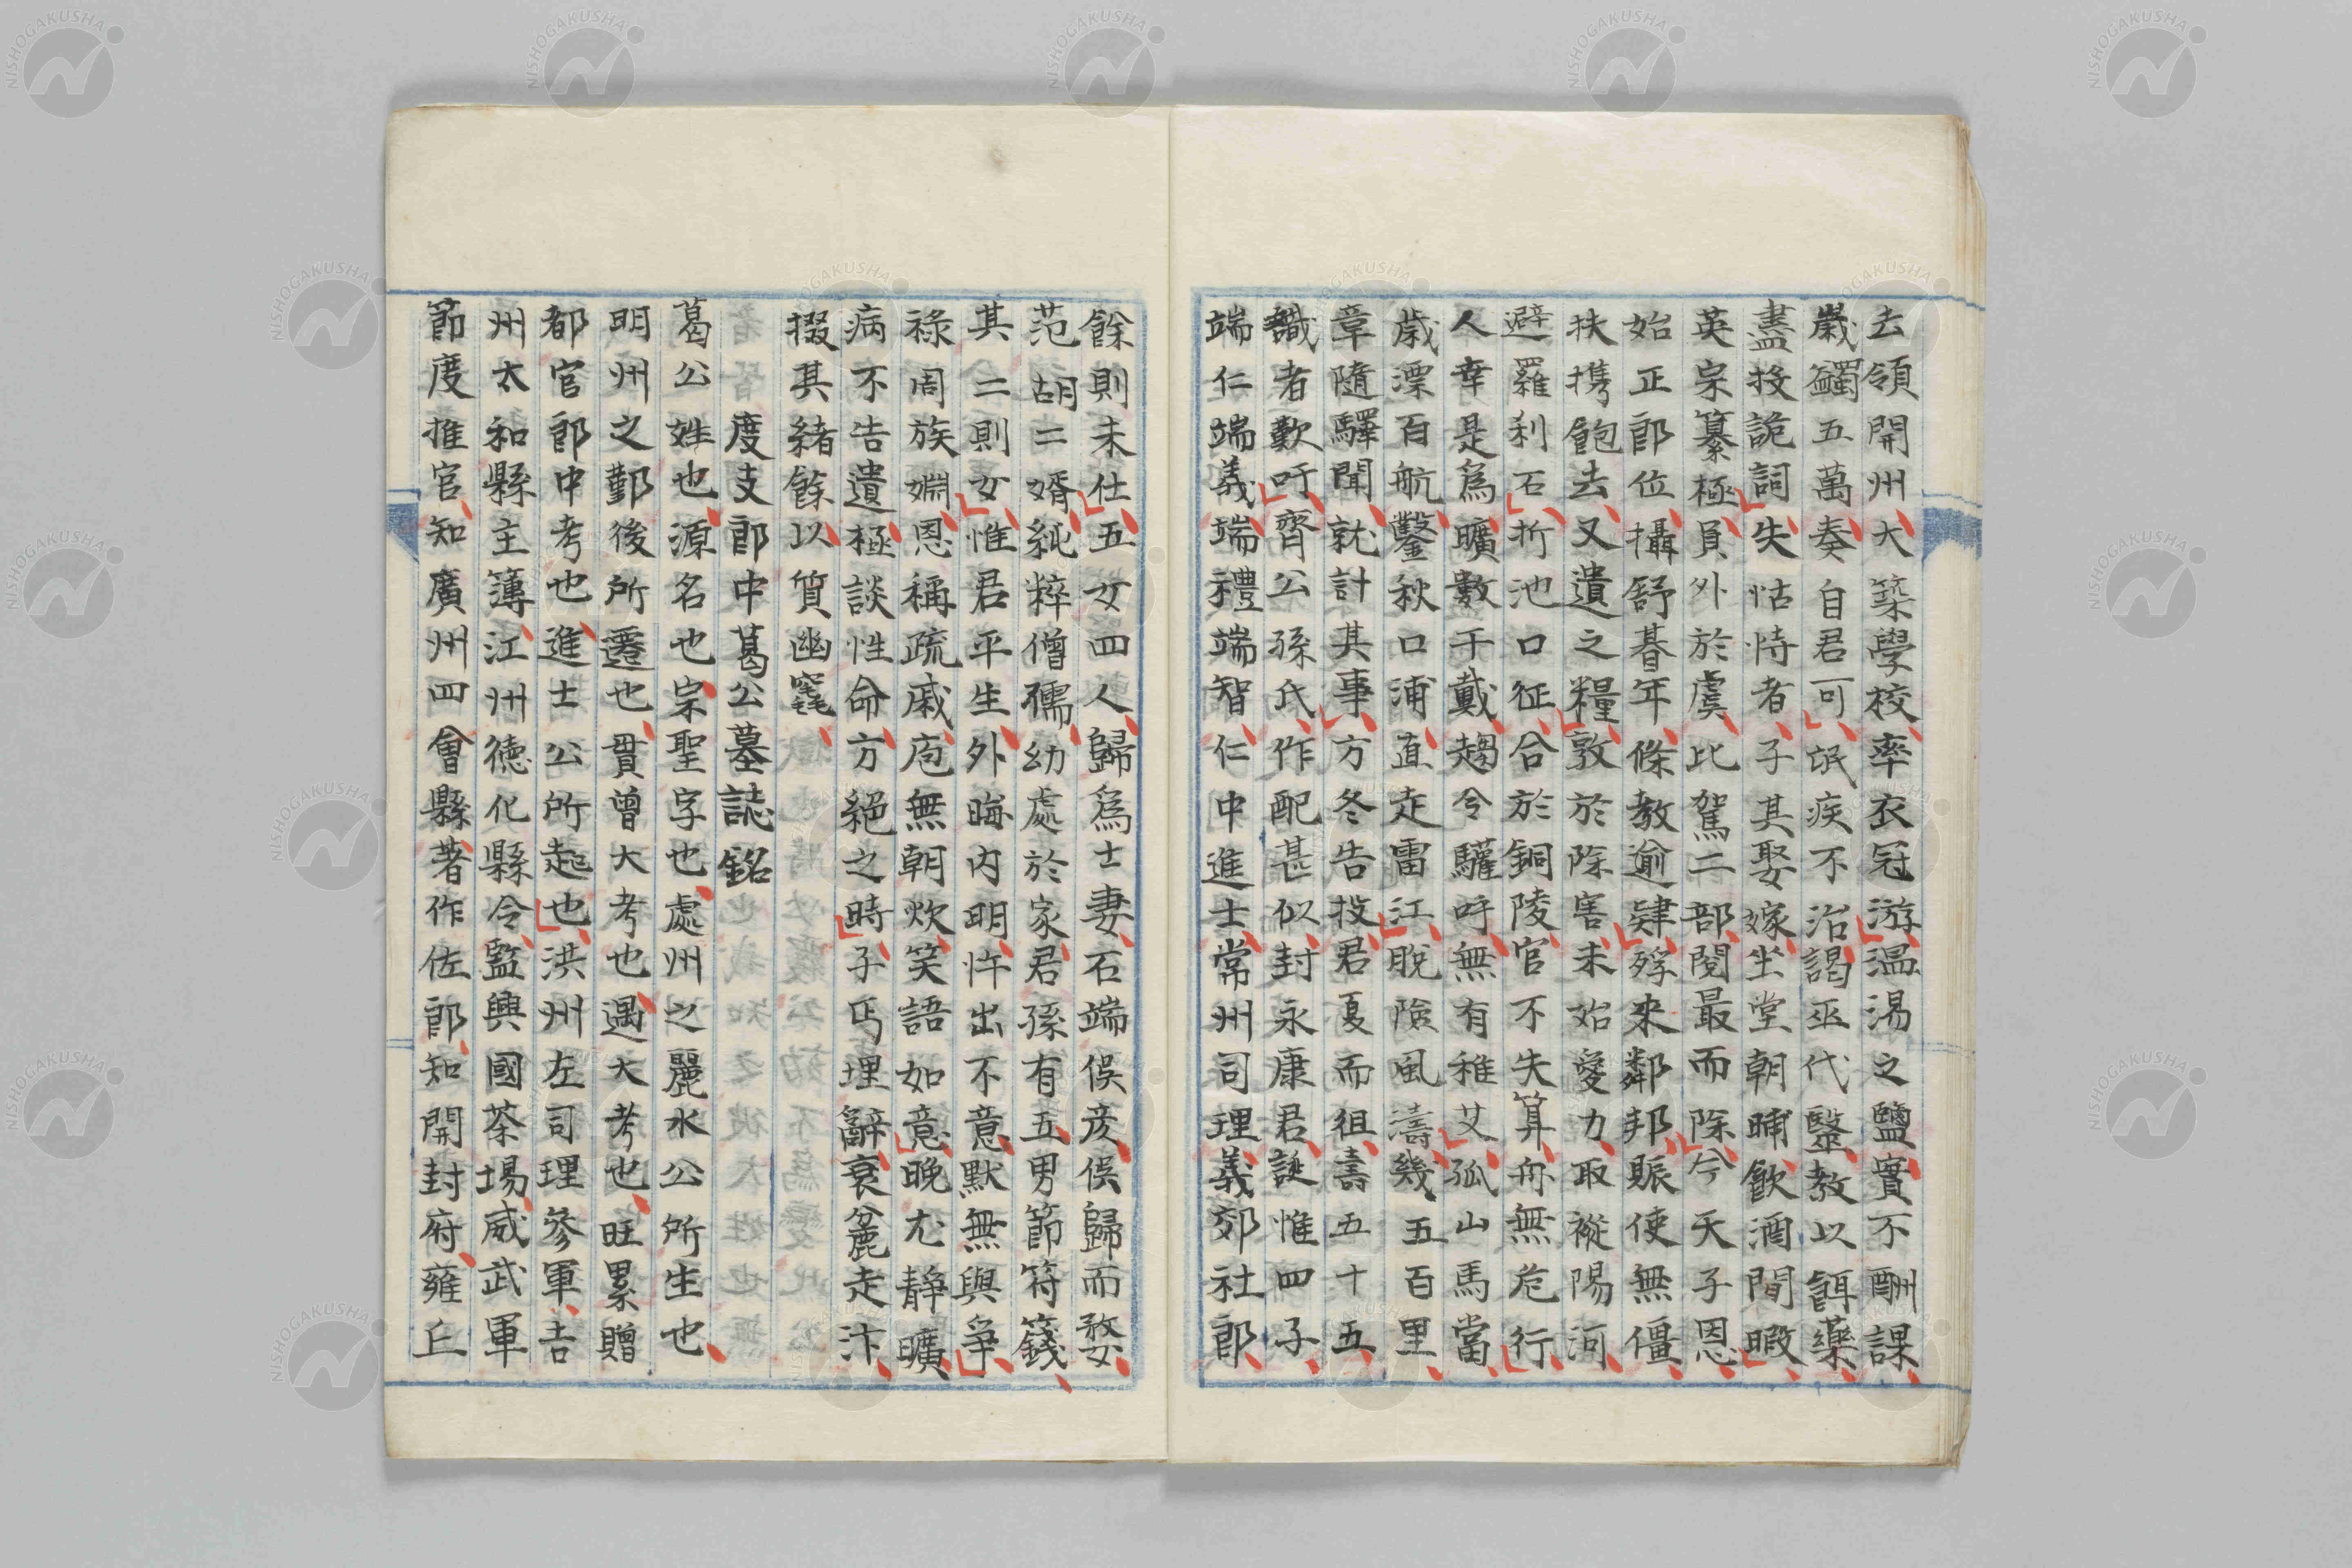 去領開州大築學校率衣冠游温湯之鹽實不酬課
歲蠲五萬奏自君可氓疾不治謁巫代毉教以餌藥
盡投詭詞失怙恃者子其娶嫁坐堂朝晡飲酒閒暇
英宗纂極員外於虞比駕二部閱最而除今天子恩
始正郎位攝舒暮年條教逾肄殍來鄰邦賑使無僵
扶携飽去又遺之糧敦於除害未始愛力取褷陽河
避羅利石折池口征合於銅陵官不失算舟無危行
人幸是爲曠數千戴趨令驩呼無有稚艾孤山馬當
歲漂百航鑿秋口浦直走雷江脫險風濤幾五百里
章隨驛聞就計其事方冬告投君夏而徂壽五十五
識者歎吁齊公孫氏作配甚似封永康君誕惟四子
端仁端義端禮端智仁中進士常州司理義郊社郎
餘則未仕五女四人歸爲士妻石端俁彦俁歸而婺
范胡二婿純粹僧孺幼處於家君孫有五男節符籛
其二則女惟君平生外晦内明忤出不意默無與爭
祿周族婣恩稱疏戚庖無朝炊笑語如意晚尤靜曠
病不告遺極談性命方絕之時子丐埋辭衰麄走汴
掇其緒餘以質幽窀
度支郎中葛公墓誌銘
葛公姓也源名也宗聖字也處州之麗水公所生也
明州之鄞後所遷也貫曾大考也遇大考也旺累贈
都官郎中考也進士公所起也洪州左司理參軍吉
州太和縣主簿江州德化縣令監興國茶場威武軍
節度推官知廣州四會縣著作佐郎知開封府雍丘